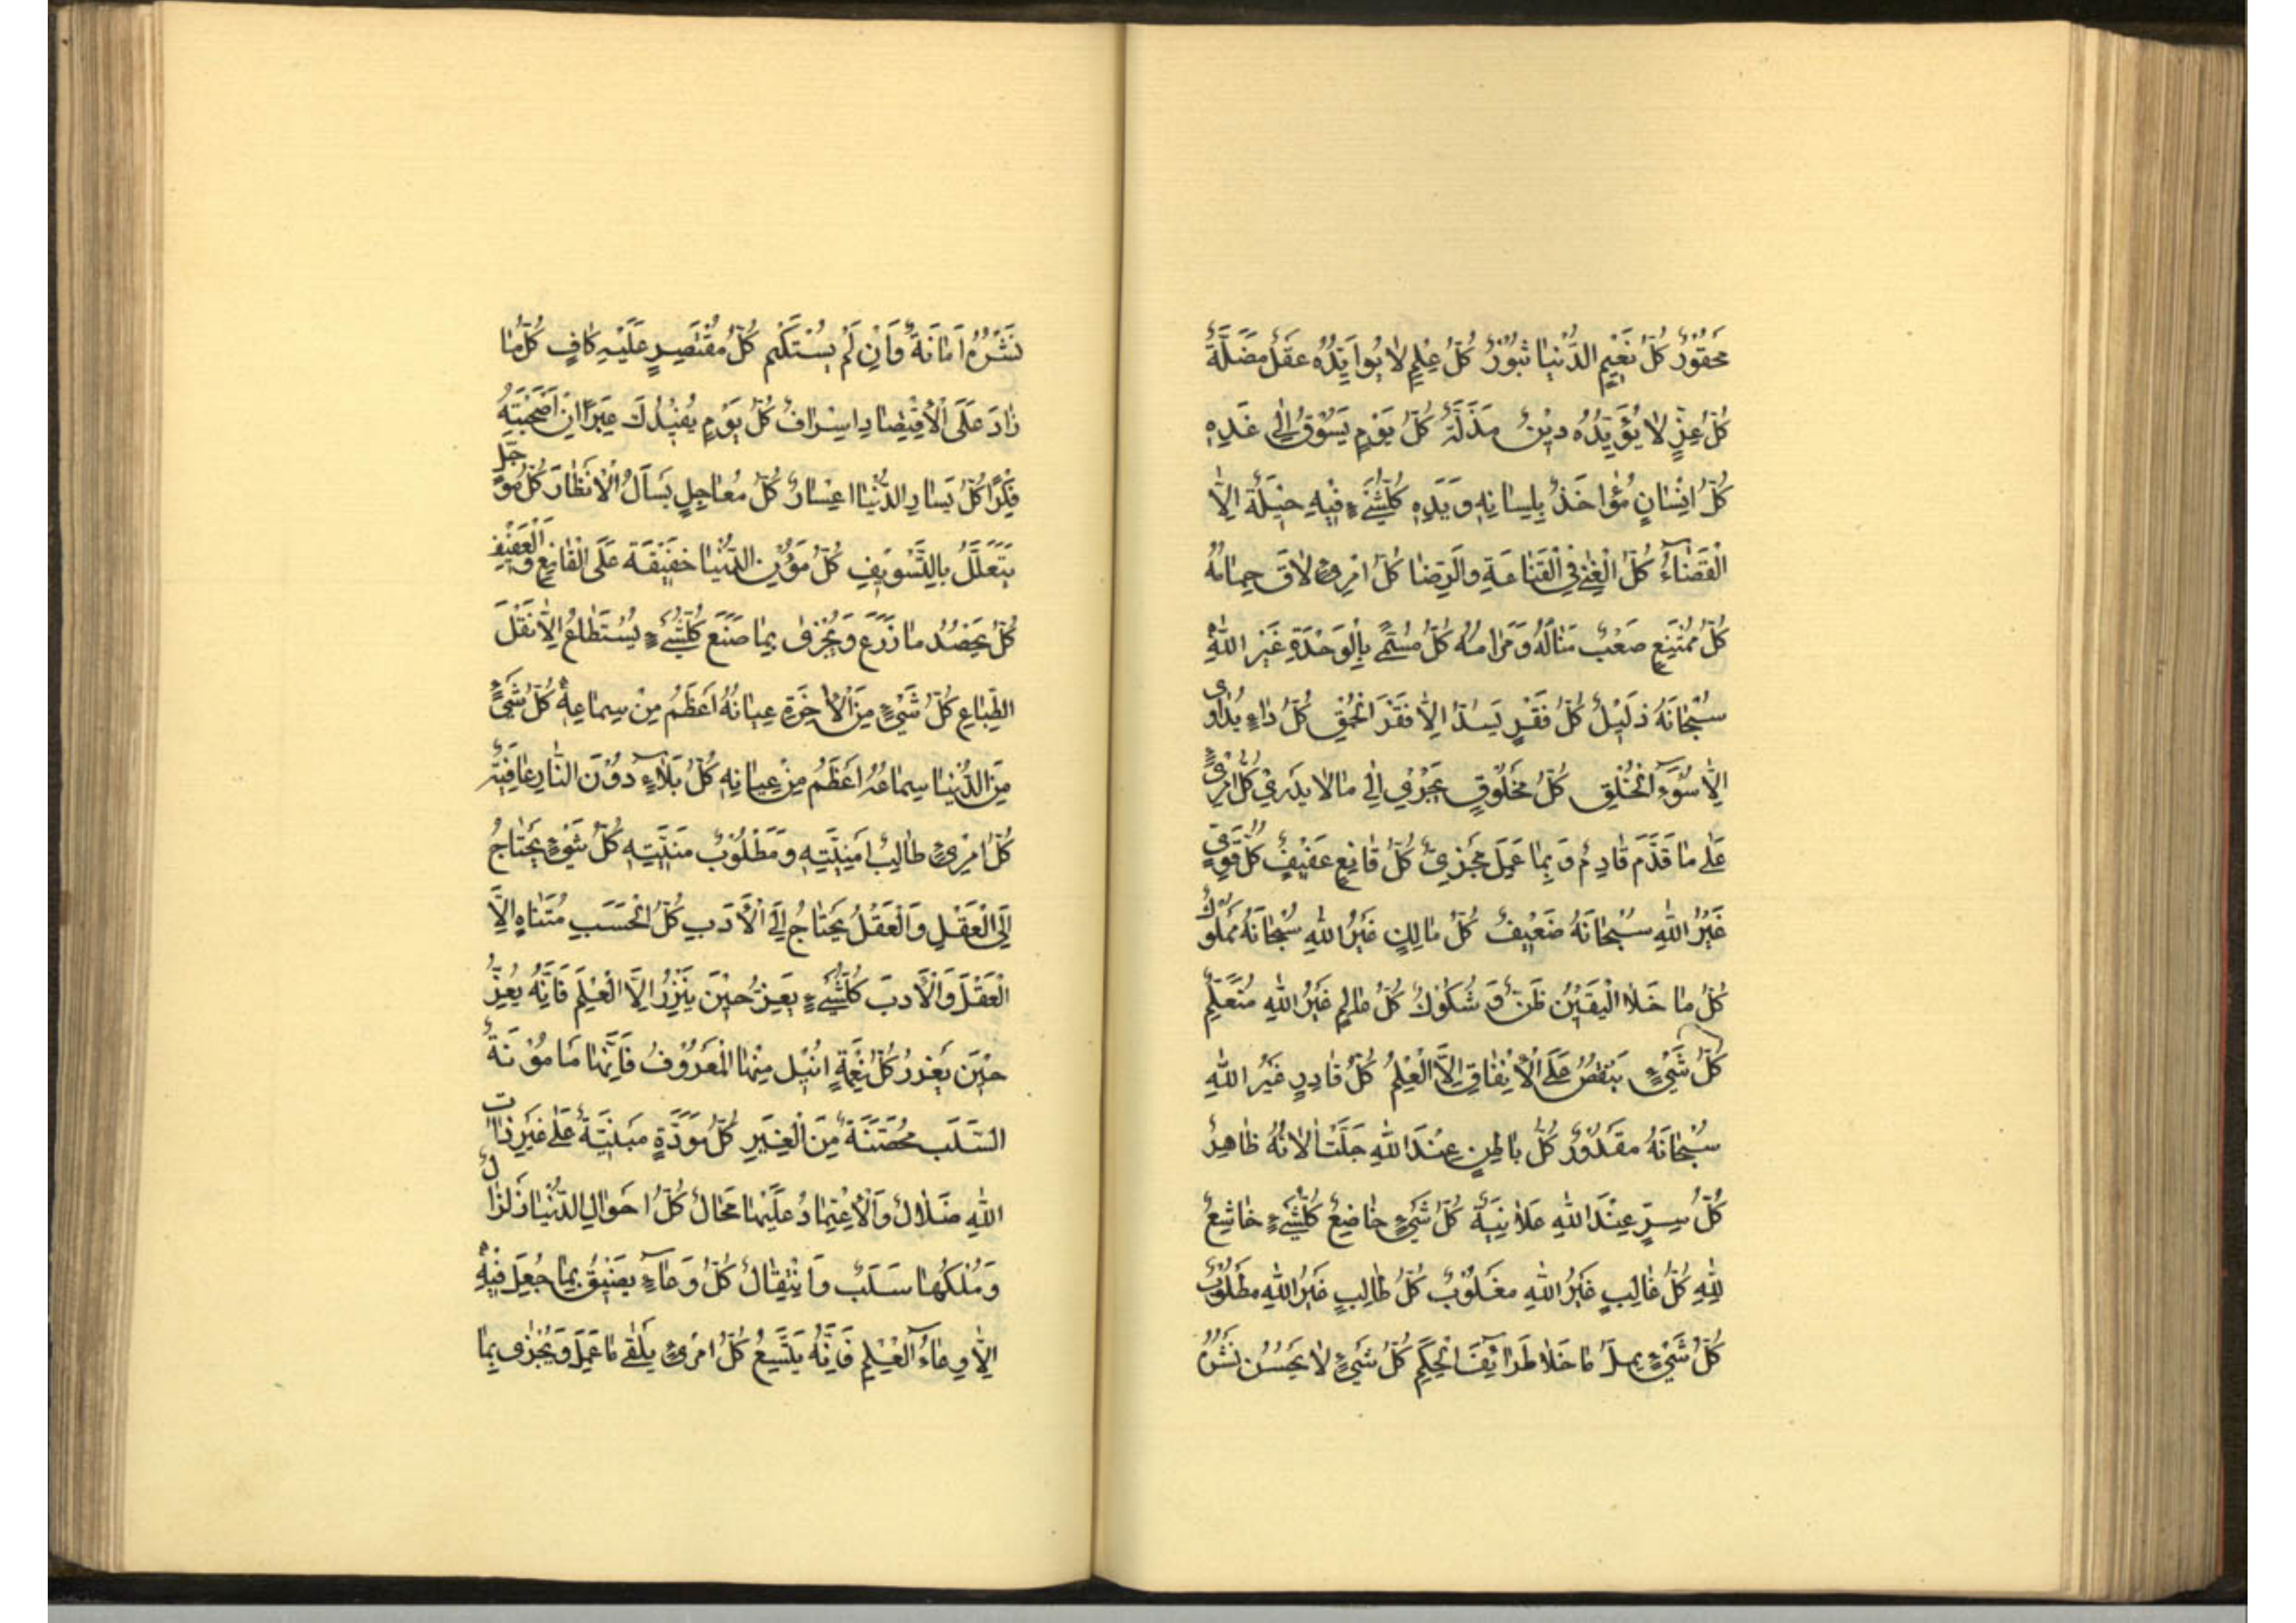 مَحقُورٌ كُلُّ نَعِيمِ الدُّنيا ثبُورٌ كُلُّ عِلْمٍ لا يُوايِّدُه عَقلٌ مَضَلَّةٌ
كُلُّ عِزٍّ لا يُؤَيِّدُهُ دِيْنٌ مَذَلَّةٌ كُلُّ يَوْمٍ يَسُوْقُ إِلى غَدِهِ
كُلُّ اِنْسانٍ مُؤاخَذٌ بِلِسانِهِ وَيَدِهِ كُلُّشَيْءٍ فيهِ حيلَةٌ اِلَّا
الْقَضآءُ كُلُّ الْغِنى فِى الْقَناعَةِ وَالرِّضا كُلُّ امْرِئٍ لاقٍ حِمامَهُ
كُلُّ مُمْتَنِعٍ صَعْبٌ مَنالُهُ وَمَرامُهُ كُلُّ مُسَمًّى بِالْوَحْدَةِ غَيْرُ اللهِ
سُبْحانَهُ ذَليلٌ كُلُّ فَقْرٍ يُسَدُّ اِلَّا فَقْرَ الْحُمْقِ كُلُّ داءٍ يُداوى
اِلَّا سُوءَ الْخُلْقِ كُلُّ مَخْلُوقٍ يَجْرى اِلى مالا يَدْرى كُلُّ امْرِئٍ
عَلى ما قَدَّمَ قادِمٌ وَبِما عَمِلَ مَجْزِىٌّ كُلُّ قانِعٍ عَفيفٌ كُلُّ قَوِىٍّ
غَيْرُ اللهِ سُبْحانَهُ ضَعيفٌ كُلُّ مالِكٍ غَيْرُ اللهِ سُبْحانَهُ مَمْلُوكٌ
كُلُّ ما خَلَا الْيَقينُ ظَنٌّ وَشُكُوكٌ كُلُّ عالِمٍ غَيْرُ اللهِ مُتَعَلِّمٌ
كُلُّ شَيْءٍ يَنْقُصُ عَلَى الْاِنْفاقِ اِلَّا الْعِلْمُ كُلُّ قادِرٍ غَيْرُ اللهِ
سُبْحانَهُ مَقْدُورٌ كُلُّ باطِنٍ عِنْدَ اللهِ جَلَّتْ اٰلائُهُ ظاهِرٌ
كُلُّ سِرٍّ عِنْدَ اللهِ عَلانِيَةٌ كُلُّ شَيْءٍ خاضِعٌ كُلُّشَيْءٍ خاشِعٌ
لِلّٰهِ كُلُّ غالِبٍ غَيْرُ اللهِ مَغْلُوبٌ كُلُّ طالِبٍ غَيْرُ اللهِ مَطْلُوبٌ
كُلُّ شَيْءٍ يملّ ما خَلا طَرائِفَ الْحِكَمِ كُلُّ شَيْءٍ لا يَحْسُنُ نَشْرُهُ
نَشْرُهُ اَمانَةٌ وَاِنْ لَمْ يُسْتَكْتَم كُلُّ مُقْتَصِرٍ عَلَيْهِ كافٍ كُلُّ ما
زادَ عَلَى الْاِقْتِصادِ اِسْرافٌ كُلُّ يَوْمٍ يُفيدُكَ عِبَراً اِنْ اَصْحَبْتَهُ
فِكْرًا كُلُّ يَسارِ الدُّنْيا اعِسارٌ كُلُّ مُعاجِلٍ يَسْأَلُ الْاِنْظارَ كُلُّ مُؤَجَّلٍ
يَتَعَلَّلُ بِالتَّسْويفِ كُلُّ مُؤَنِ الدُّنْيا خَفيفَةٌ عَلَى الْقانِعِ وَالْعَفيفِ
كُلٌّ يَحْصُدُ ما زَرَعَ وَيُجْزى بِما صَنَعَ كُلُّشَيْءٍ يُسْتَطاعُ اِلَّا نَقْلَ
الطِّباعِ كُلُّ شَيْءٍ مِنَ الْاٰخِرَةِ عِيانُهُ اَعْظَمُ مِنْ سِماعِهِ كُلُّ شَيْءٍ
مِنَ الدُّنْيا سِماعُهُ اَعْظَمُ مِنْ عِيانِهِ كُلُّ بَلاءٍ دُوْنَ النّارِ عافِيَةٌ
كُلُّ امْرِئٍ طالِبُ اُمْنِيَّتِهِ وَمَطْلُوبُ مَنِيَّتِهِ كُلُّ شَيْءٍ يَحْتاجُ
اِلَى الْعَقْلِ وَالْعَقْلُ يَحْتاجُ اِلَى الْأَدَبِ كُلُّ الْحَسَبِ مُتَناهٍ اِلَّا
الْعَقْلَ وَالْأَدَبَ كُلُّشَيْءٍ يَعِزُّ حينَ يَنْزُرُ اِلَّا الْعِلْمَ فَاِنَّهُ يَعِزُّ
حينَ يَغْزُرُ كُلُّ نِعْمَةٍ انُيلَ مِنْهَا الْمَعْرُوفُ فَاِنَّها مَامُوْنَةُ
السَّلَبِ مُحْصَنَةٌ مِنَ الْغِيَرِ كُلُّ مَوَدَّةٍ مَبْنِيَّةٌ عَلى غَيْرِ ذاتِ
اللهِ ضَلالٌ وَالْاِعْتِمادُ عَلَيْها مَحالٌ كُلُّ اَحْوالِ الدُّنْيا زَلْزالٌ
وَمُلْكُها سَلَبٌ وَانْتِقالٌ كُلُّ وِعاءٍ يَضيقُ بِما جُعِلَ فيهِ
اِلَّا وِعاءُ الْعِلْمِ فَاِنَّهُ يَتَّسِعُ كُلُّ امْرِئٍ يَلْقى ما عَمِلَ وَيُجْزى بِما